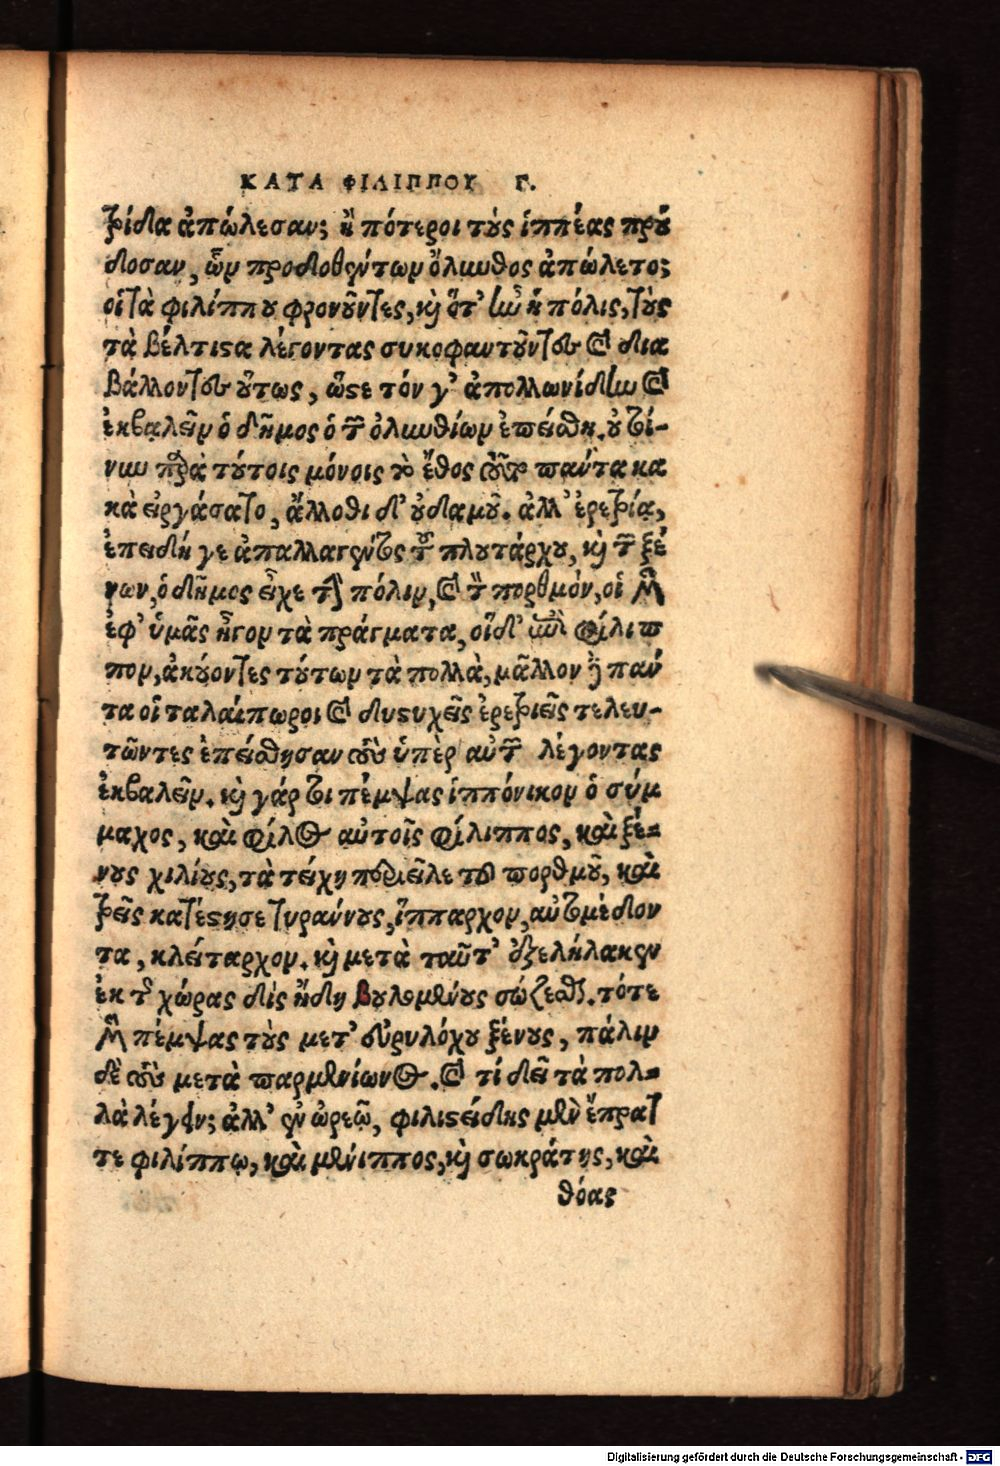 ΚΑΤΑ ΦΙΛΙΠΠΟΥ Γ.
τρίδα ἀπώλεσαν; ἢ πότεροι τοὺς ἱππέας πρού
δοσαν, ὧν προδοθέντων ὄλυνθος ἀπώλετο;
οἱ τὰ φιλίππου φρονοῦντες, καὶ ὅτ' ἦν ἡ πόλις, τοὺς
τὰ βέλτιστα λέγοντας συκοφαντοῦντες καὶ δια
βάλλοντες οὕτως, ὥστε τόν γ' ἀπολλωνίδην καὶ
ἐκβαλεῖν ὁ δῆμος ὁ τῶν ὀλυνθίων ἐπείσθη. οὐ τοί-
νυν παρὰ τούτοις μόνοις τὸ ἔθος τοῦτο πάντα κα
κὰ εἰργάσατο, ἄλλοθι δ' οὐδαμοῦ. ἀλλ' ἐρετρίᾳ,
ἐπειδή γε ἀπαλλαγέντος τοῦ πλουτάρχου, καὶ τῶν ξέ
νων, ὁ δῆμος εἶχε τὴν πόλιν, καὶ τὸν πορθμόν, οἱ μὲν
ἐφ' ὑμᾶς ἦγον τὰ πράγματα, οἱ δ' ἐπὶ φίλιπ
πον, ἀκούοντες τούτων τὰ πολλὰ, μᾶλλον δὲ πάν
τα οἱ ταλαίπωροι καὶ δυστυχεῖς ἐρετριεῖς τελευ-
τῶντες ἐπείσθησαν τοὺς ὑπὲρ αὐτῶν λέγοντας
ἐκβαλεῖν. καὶ γάρ τοι πέμψας ἱππόνικον ὁ σύμ
μαχος, καὶ φίλος αὐτοῖς φίλιππος, καὶ ξέ-
νους χιλίους, τὰ τείχη περιεῖλε τοῦ πορθμοῦ, καὶ
τρεῖς κατέστησε τυράννους, ἵππαρχον, αὐτομέδον
τα, κλείταρχον. καὶ μετὰ ταῦτ' ἐξελήλακεν
ἐκ τῆς χώρας δὶς ἤδη βουλομένους σώζεσθαι. τότε
μὲν πέμψας τοὺς μετ' εὐρυλόχου ξένους, πάλιν
δὲ τοὺς μετὰ παρμενίωνος. καὶ τί δεῖ τὰ πολ-
λὰ λέγειν; ἀλλ' ἐν ὠρεῷ, φιλιστείδης μὲν ἔπρατ
τε φιλίππῳ, καὶ μένιππος, καὶ σωκράτης, καὶ
θόας
Digitalisierung gefördert durch die Deutsche Forschungsgemeinschaft - DFG